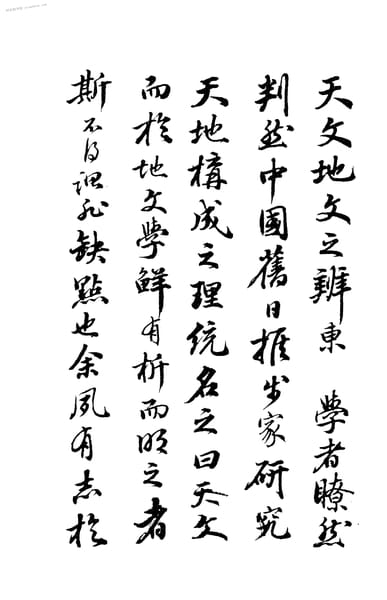 天文地文之辨東　學者瞭然
判然中國舊日推步家研究
天地構成之理統名之曰天文
而於地文學鮮有析而明之者
斯不得謂非缺點也余夙有志於